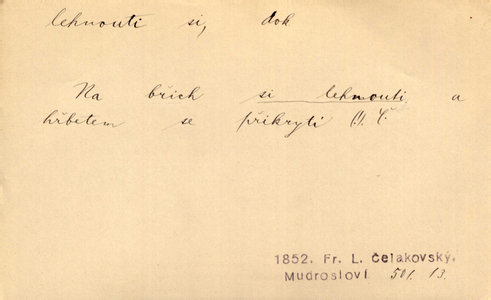 lehnouti si, dok
Na břich si lehnouti a
hřbetem se přikryti
1852. Fr. L. Čelakovský,
Mudrosloví 501. 13.